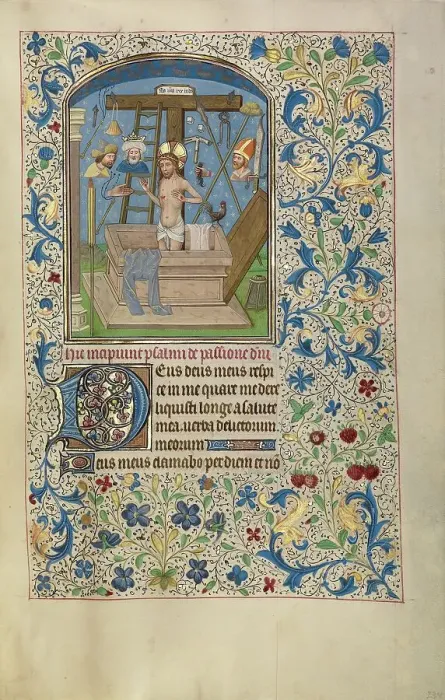 Hic incipiunt psalmi de passione dni
Deus deus meus respi
ce in me quare me dere
liquisti longe a salute
mea uerba delictorum
meorum
Deus meus clamabo per diem et nō